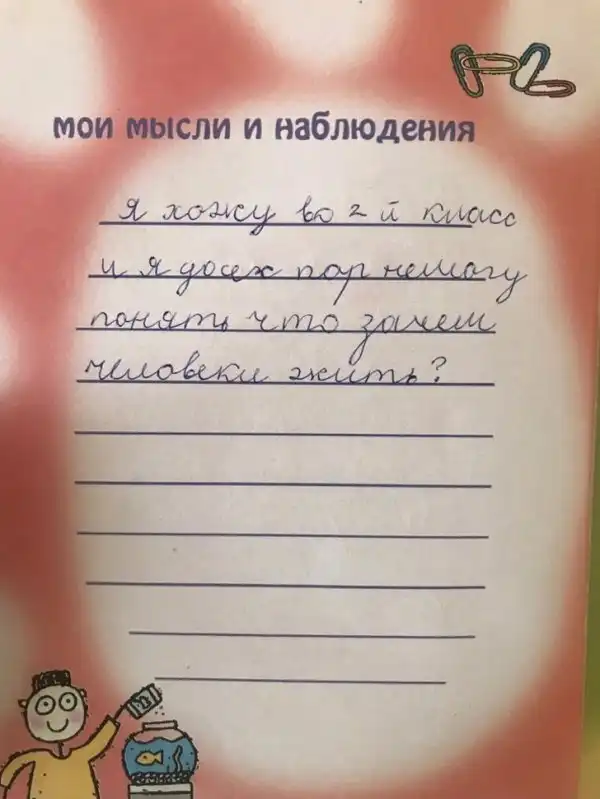 мои мысли и наблюдения
я хожу во 2 й класс
и я досех пор немогу
понять что зачем
человеки жить?